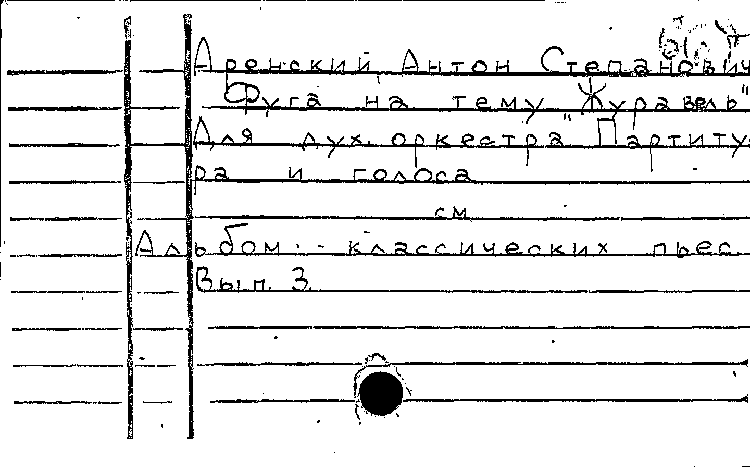 Аренский, Антон Степанович
Фуга на тему "Журавель"
Для дух. оркестра Партиту-
ра и голоса
см
Альбом классических пьес
Вып. 3.